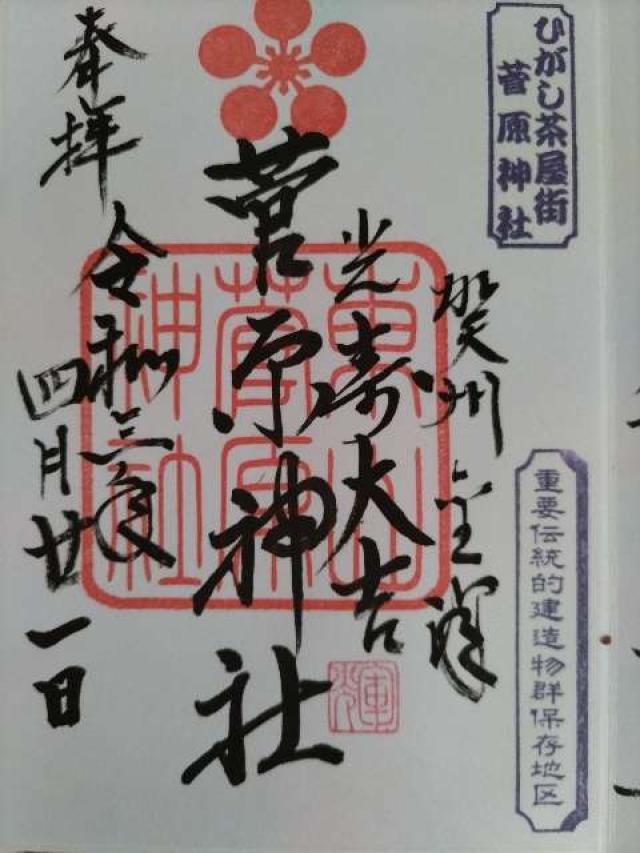 ひがし茶屋街
菅原神社
重要伝統的建造物群保存地区
賀州金澤
光寿大吉
菅原神社
東山
菅原
神社
輝
奉拝
令和三年
四月廿一日